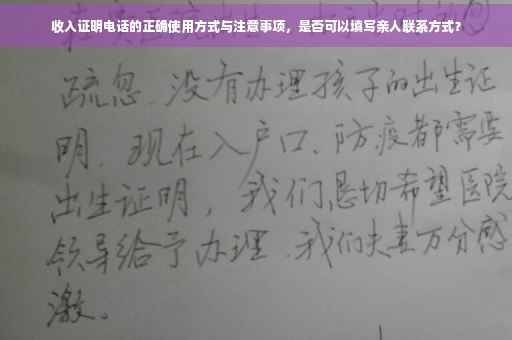 收入证明电话的正确使用方式与注意事项，是否可以填写亲人联系方式？
疏忽、没有办理孩子的出生证
明、现在入户口、防疫都需要
出生证明，我们恳切希望医院
领导给予办理、我们夫妻万分感
激。